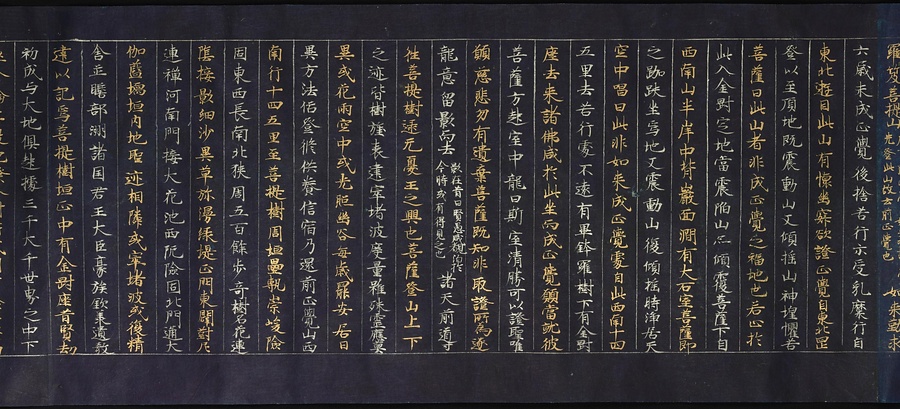 六歲未成正覺後捨苦行示受乳糜行自
東北遊目此山有懷幽寂欲證正覺自東北罡
登以至頂地既震動山又傾搖山神惶懼告
菩薩曰此山者非成正覺之福地也若止於
此入金剛定地當震陷山亦傾覆菩薩下自
西南山半崖中背巖面澗有大石室菩薩即
之跏趺坐焉地又震動山復傾搖時淨居天
空中唱曰此非如來成正覺處自此西南十四
五里去苦行處不遠有畢鉢羅樹下有金剛
座去來諸佛咸於此坐而成正覺願當就彼
菩薩方起室中龍曰斯室清勝可以證聖唯
願慈悲勿有遺棄菩薩既知非取證所為遂
龍意留影而去影在昔日賢愚咸覩洎於今時或有得見之也諸天前導
往菩提樹逮无憂王之興也菩薩登山上下
之迹皆樹旌表建窣堵波度量雖殊靈應莫
異或花雨空中或光照幽谷每歲罷安居日
異方法俗登彼供養信宿乃還前正覺山西
南行十四五里至菩提樹周垣壘甎崇峻險
固東西長南北狹周五百餘步奇樹名花連
蔭接影細沙異草弥漫綠提正門東闢對尼
連禪河南門接大花池西阨險固北門通大
伽藍壖垣内地聖迹相隣或窣堵波或復精
舍並贍部洲諸國君王大臣豪族欽承遺教
建以記焉菩提樹垣正中有金剛座昔賢劫
初成与大地俱起據三千大千世界之中下